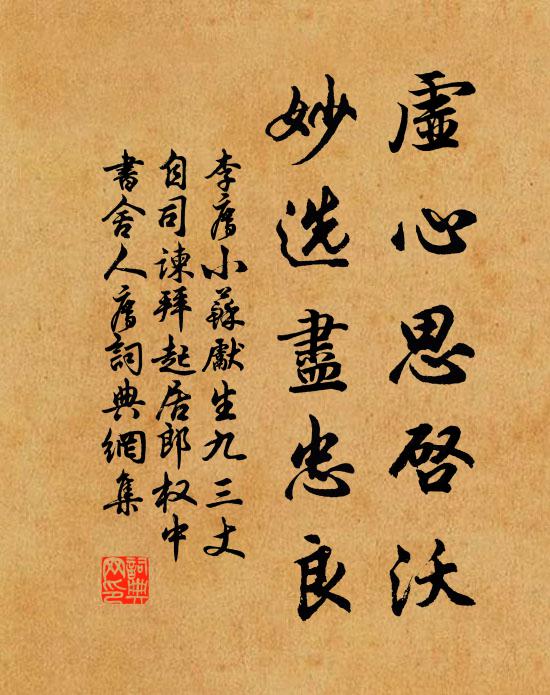 虛心思啓沃
妙选盡忠良
李廌小蘇獻生九三丈
自司諫拜起居郎权中
書舍人廌詞典網集
詞典
网印